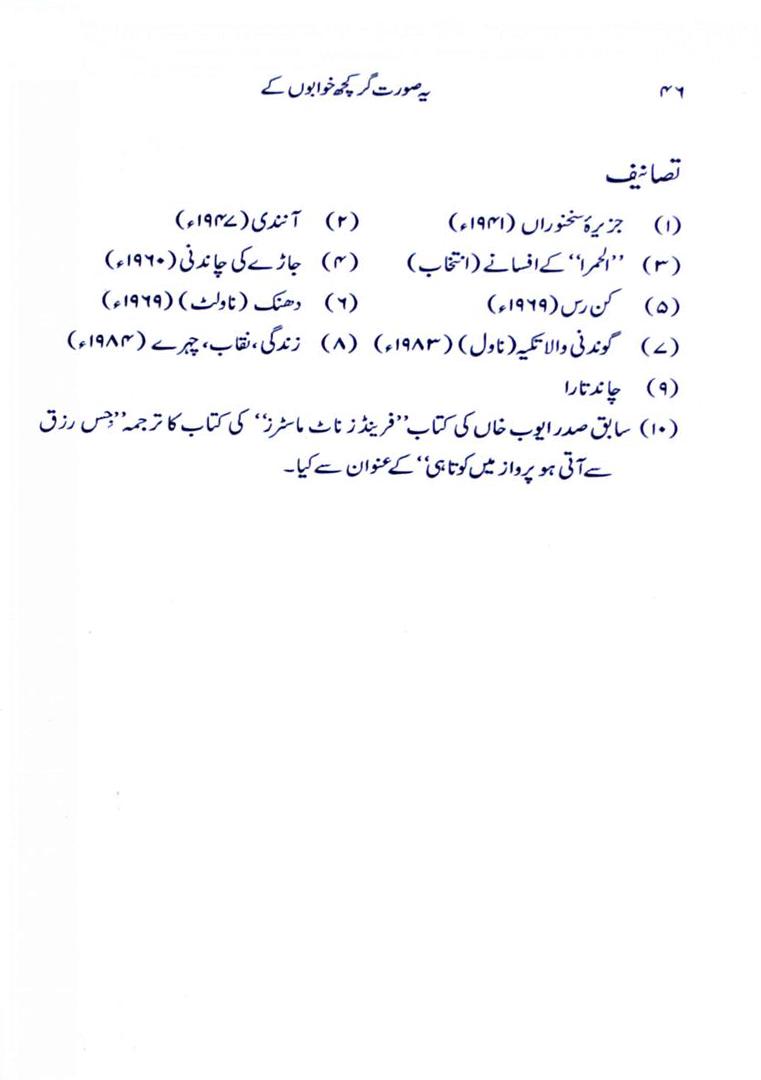 ۴۶ یہ صورت گر کچھ خوابوں کے
تصانیف
(۱) جزیرۂ سخنوراں (۱۹۴۱ء) (۲) آنندی (۱۹۴۷ء)
(۳) ’’الحمرا‘‘ کے افسانے (انتخاب) (۴) جاڑے کی چاندنی (۱۹۶۰ء)
(۵) کن رس (۱۹۶۹ء) (۶) دھنک (ناولٹ) (۱۹۶۹ء)
(۷) گوندنی والا تکیہ (ناول) (۱۹۸۳ء) (۸) زندگی، نقاب، چہرے (۱۹۸۴ء)
(۹) چاند تارا
(۱۰) سابق صدر ایوب خاں کی کتاب ’’فرینڈز ناٹ ماسٹرز‘‘ کی کتاب کا ترجمہ ’’جس رزق
سے آتی ہو پرواز میں کوتاہی‘‘ کے عنوان سے کیا۔